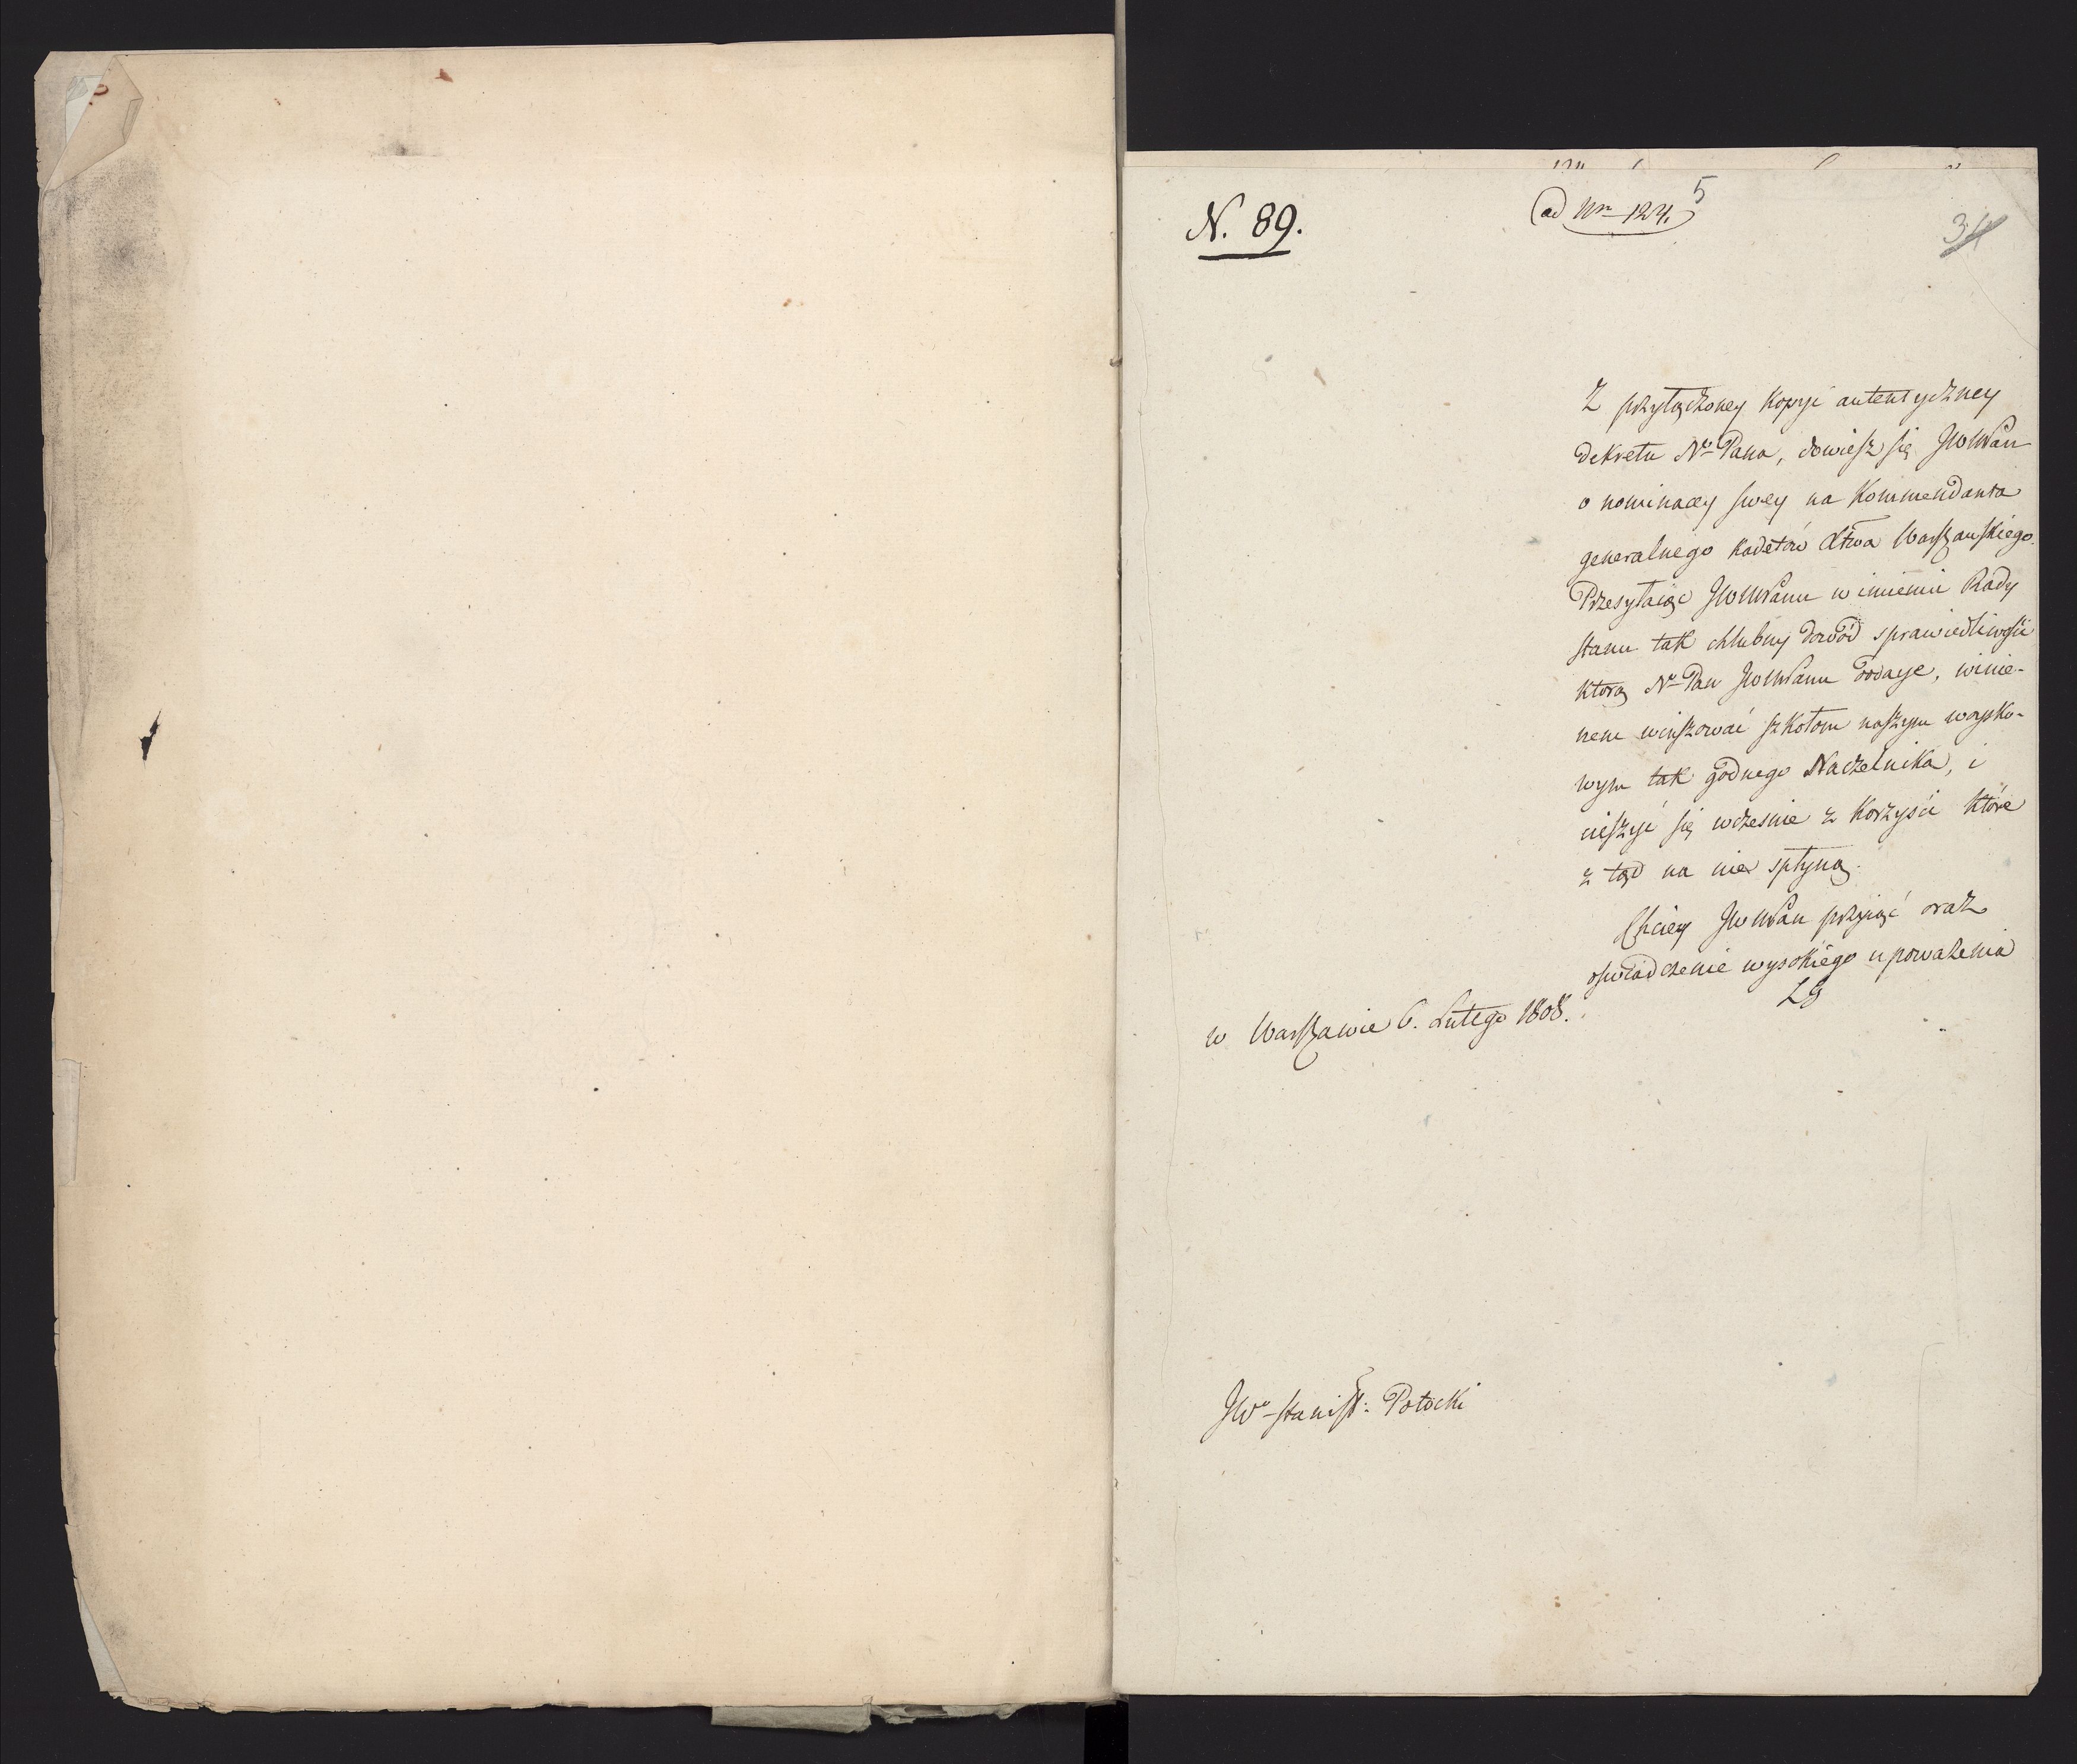 N. 89.
ad Nro 124.
5
34
Z przyłączoney kopyi autentyczney
dekretu No Pana, dowiesz się JWWPan
o nominacy swey na Kommendanta
generalnego kadetów Xtwa Warszawskiego.
Przesyłaiąc JWWPanu w imieniu Rady
stanu tak chlubny dowód sprawiedliwości
którą Ny Pan JWWPanu oddaye, winie-
nem winszować szkołom naszym woysko-
wym tak godnego Naczelnika, i
cieszyć się wcześnie z korzyści które
z tąd na nie spłyną.
Chciey JWWPan przyiąć oraz
oświadczenie wysokiego upoważenia
w Warszawie 6. Lutego 1808.
JWo Stanisł: Potocki